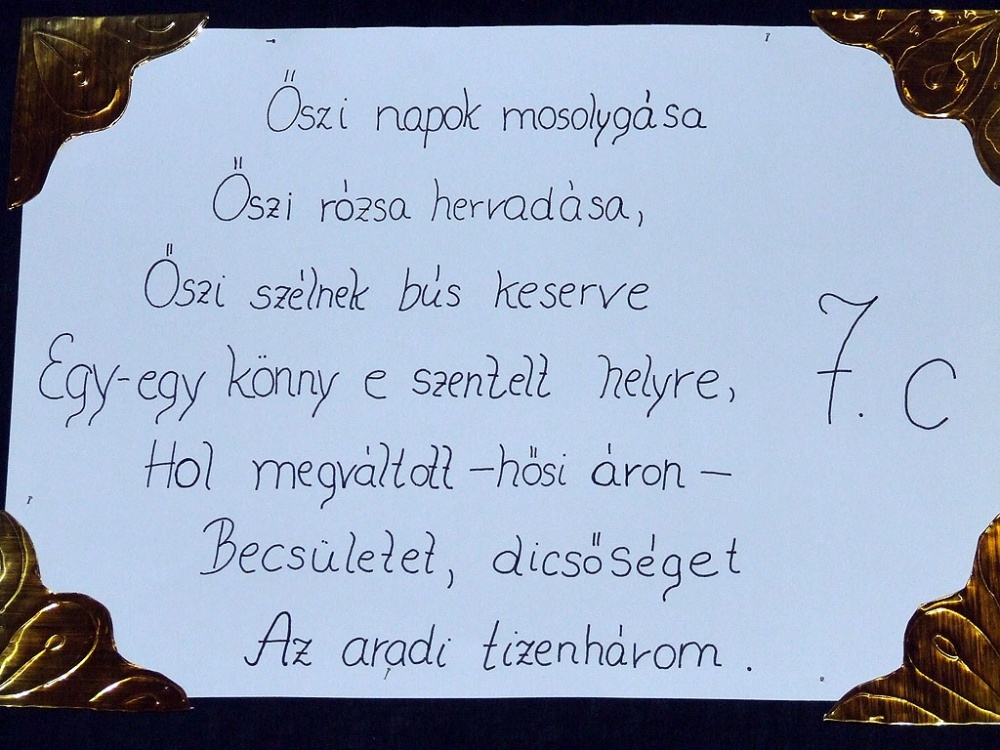 Őszi napok mosolygása
Őszi rózsa hervadása,
Őszi szélnek bús keserve
Egy-egy könny e szentelt helyre,
Hol megváltott – hősi áron –
Becsületet, dicsőséget
Az aradi tizenhárom.
7. C